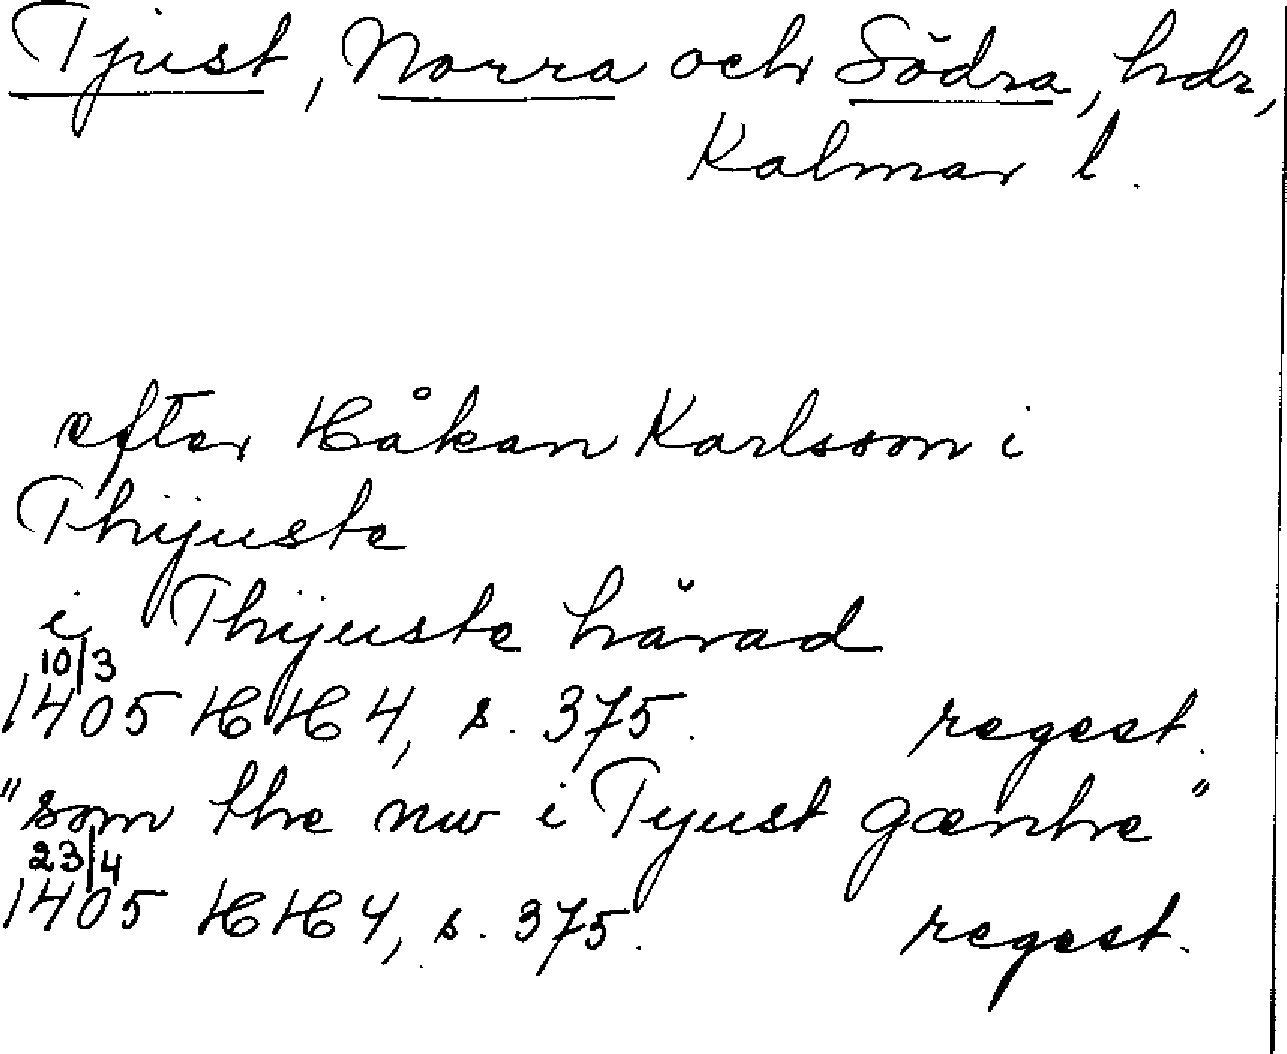 Tjust, Norra och Södra, hdr,
Kalmar l.
efter Håkan Karlsson i
Thijuste
i Thijuste härad
10/3
1405 HH 4, s. 375. regest.
"som the nw i Tyust gænthe"
23/4
1405 HH 4, s. 375. regest.